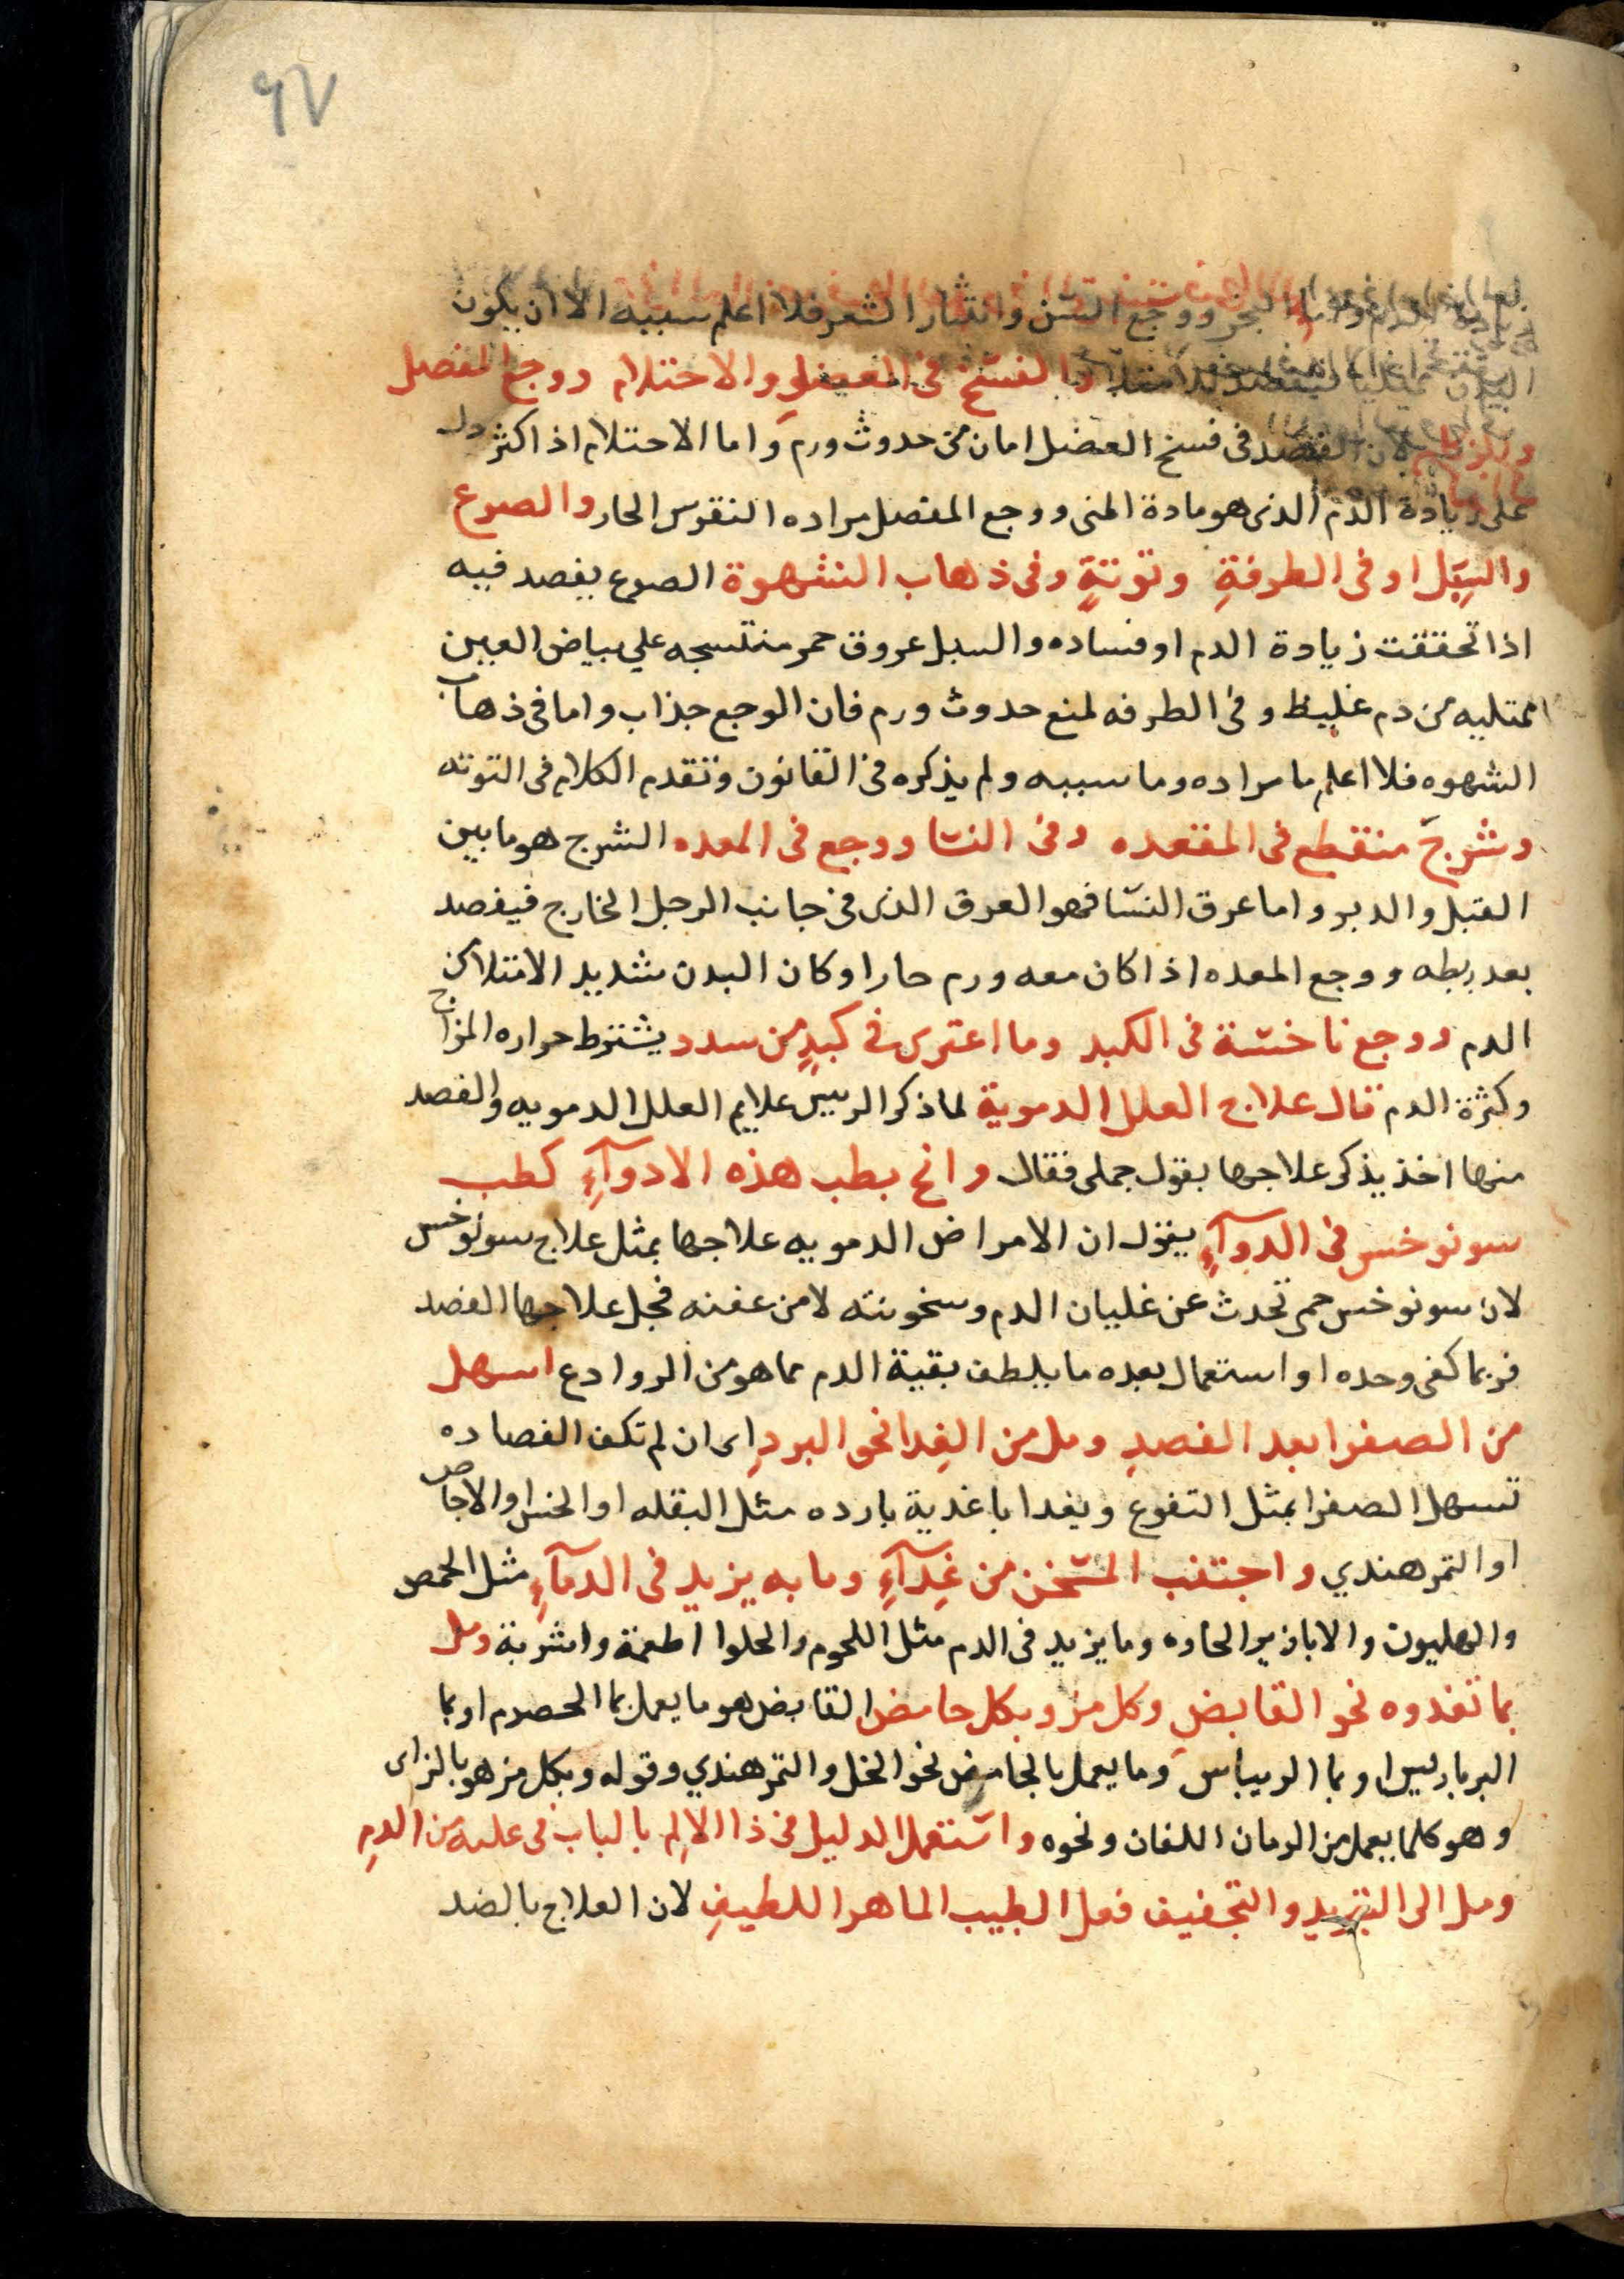 ٩٧
زيادة الدم واما البخر ووجع السن وانتثار الشعر فلا اعلم سببه الا ان يكون
البدن ممتليا فيفصد للامتلا والفسخ في العضل والاحتلام ووجع المفصل
لان الفصد في فسخ العضل امان من حدوث ورم واما الاحتلام اذا كثر دل
على زيادة الدم الذى هو مادة المنى ووجع المفصل مراده النقرس الحار والصرع
والسبل او في الطرفةِ وتوتةٍ وفى ذهاب الشهوة الصرع يفصد فيه
اذا تحققت زيادة الدم او فساده والسبل عروق حمر منتسجه علي بياض العين
ممتليه من دم غليظ وفي الطرفه لمنع حدوث ورم فان الوجع جذاب واما في ذهاب
الشهوه فلا اعلم ما مراده وما سببه ولم يذكره في القانون وتقدم الكلام في التوته
وشرج منقطع في المقعده وفي النسا ووجع في المعده الشرج هو ما بين
القبل والدبر واما عرق النسا فهو العرق الذى في جانب الرجل الخارج فيفصد
بعد ربطه ووجع المعده اذا كان معه ورم حار او كان البدن شديد الامتلا من
الدم ووجع ناخسة في الكبد وما اعترى في كبدٍ من سدد يشترط حراره المزاج
وكثرة الدم قال علاج العلل الدموية لما ذكر الرييس علايم العلل الدمويه والفصد
منها اخذ يذكر علاجها بقول جملى فقال وانح بطب هذه الادوآءِ كطب
سونوخس في الدوآءِ يقول ان الامراض الدمويه علاجها بمثل علاج سونوخس
لان سونوخس حمى تحدث عن غليان الدم وسخونته لا من عفنه فجل علاجها الفصد
فربما كفى وحده او استعمال بعده ما يلطف بقية الدم مما هو من الروادع اسهل
من الصفرا بعد الفصدِ ومل من الغِدا نحو البردِ اى ان لم تكف الفصاده
تسهل الصفرا بمثل النقوع ويغدا باغدية بارده مثل البقله او الخس او الاجاص
او التمر هندي واجتنب المسخن من غِدآءِ وما به يزيد في الدمآءِ مثل الحمص
والهليون والابازير الحاده وما يزيد في الدم مثل اللحوم والحلوا اطعمة واشربة ومل
بما تغدوه نحو القابضِ وكل مز وبكل حامض القابض هو ما يعمل بما الحصرم او بما
البرباريس او بما الريباس وما يعمل بالحامض نحو الخل والتمر هندي وقوله وبكل مز هو بالزاى
وهو كلما يعمل من الرمان اللفان ونحوه واستعمل الدليل في ذا الالِم بالباب في علىه من الدمِ
ومل الى التبريد والتجفيف فعل الطبيب الماهر اللطيفِ لان العلاج بالضد